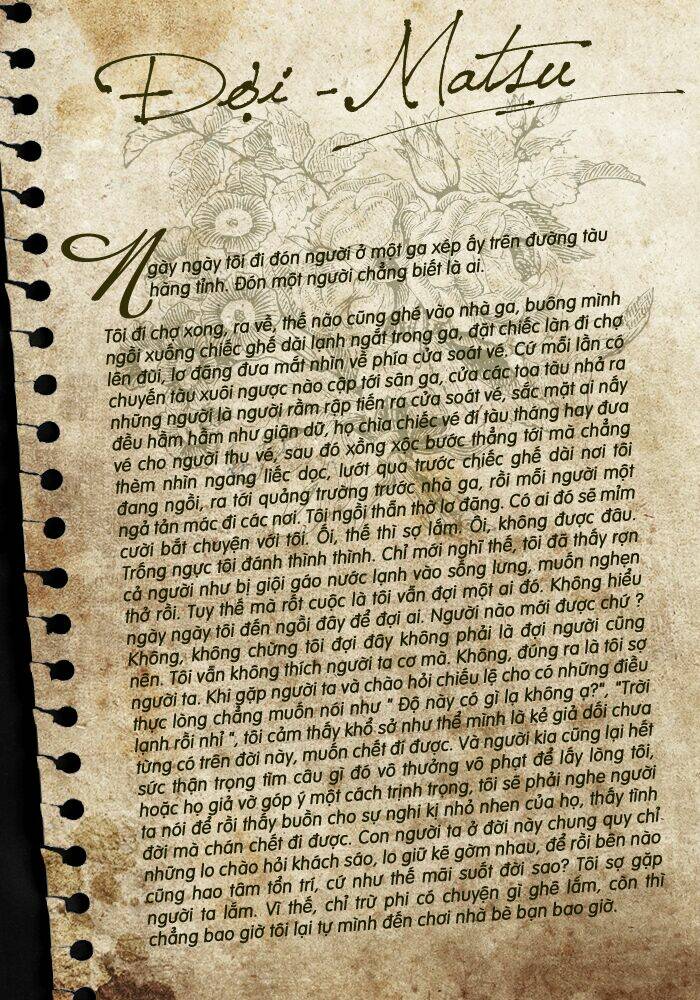 Đợi - Matsu
Ngày ngày tôi đi đón người ở một ga xép ấy trên đường tàu
hãng tỉnh. Đón một người chẳng biết là ai.
Tôi đi chợ xong, ra về, thế nào cũng ghé vào nhà ga, buông mình
ngồi xuống chiếc ghế dài lạnh ngắt trong ga, đặt chiếc làn đi chợ
lên đùi, lơ đãng đưa mắt nhìn về phía cửa soát vé. Cứ mỗi lần có
chuyến tàu xuôi ngược nào cập tới sân ga, cửa các toa tàu nhả ra
những người là người rầm rập tiến ra cửa soát vé, sắc mặt ai nấy
đều hầm hầm như giận dữ, họ chìa chiếc vé đi tàu tháng hay đưa
vé cho người thu vé, sau đó xồng xộc bước thẳng tới mà chẳng
thèm nhìn ngang liếc dọc, lướt qua trước chiếc ghế dài nơi tôi
đang ngồi, ra tới quảng trường trước nhà ga, rồi mỗi người một
ngả tản mác đi các nơi. Tôi ngồi thẫn thờ lơ đãng. Có ai đó sẽ mỉm
cười bắt chuyện với tôi. Ối, thế thì sợ lắm. Ôi, không được đâu.
Trống ngực tôi đánh thình thình. Chỉ mới nghĩ thế, tôi đã thấy rợn
cả người như bị giội gáo nước lạnh vào sống lưng, muốn nghẹn
thở rồi. Tuy thế mà rốt cuộc là tôi vẫn đợi một ai đó. Không hiểu
ngày ngày tôi đến ngồi đây để đợi ai. Người nào mới được chứ ?
Không, không chừng tôi đợi đây không phải là đợi người cũng
nên. Tôi vẫn không thích người ta cơ mà. Không, đúng ra là tôi sợ
người ta. Khi gặp người ta và chào hỏi chiếu lệ cho có những điều
thực lòng chẳng muốn nói như " Độ này có gì lạ không ạ?", "Trời
lạnh rồi nhỉ ", tôi cảm thấy khổ sở như thể mình là kẻ giả dối chưa
từng có trên đời này, muốn chết đi được. Và người kia cũng lại hết
sức thận trọng tìm câu gì đó vô thưởng vô phạt để lấy lòng tôi,
hoặc họ giả vờ góp ý một cách trịnh trọng, tôi sẽ phải nghe người
ta nói để rồi thấy buồn cho sự nghi kị nhỏ nhen của họ, thấy tình
đời mà chán chết đi được. Con người ta ở đời này chung quy chỉ
những lo chào hỏi khách sáo, lo giữ kẽ gờm nhau, để rồi bên nào
cũng hao tâm tổn trí, cứ như thế mãi suốt đời sao? Tôi sợ gặp
người ta lắm. Vì thế, chỉ trừ phi có chuyện gì ghê lắm, còn thì
chẳng bao giờ tôi lại tự mình đến chơi nhà bè bạn bao giờ.